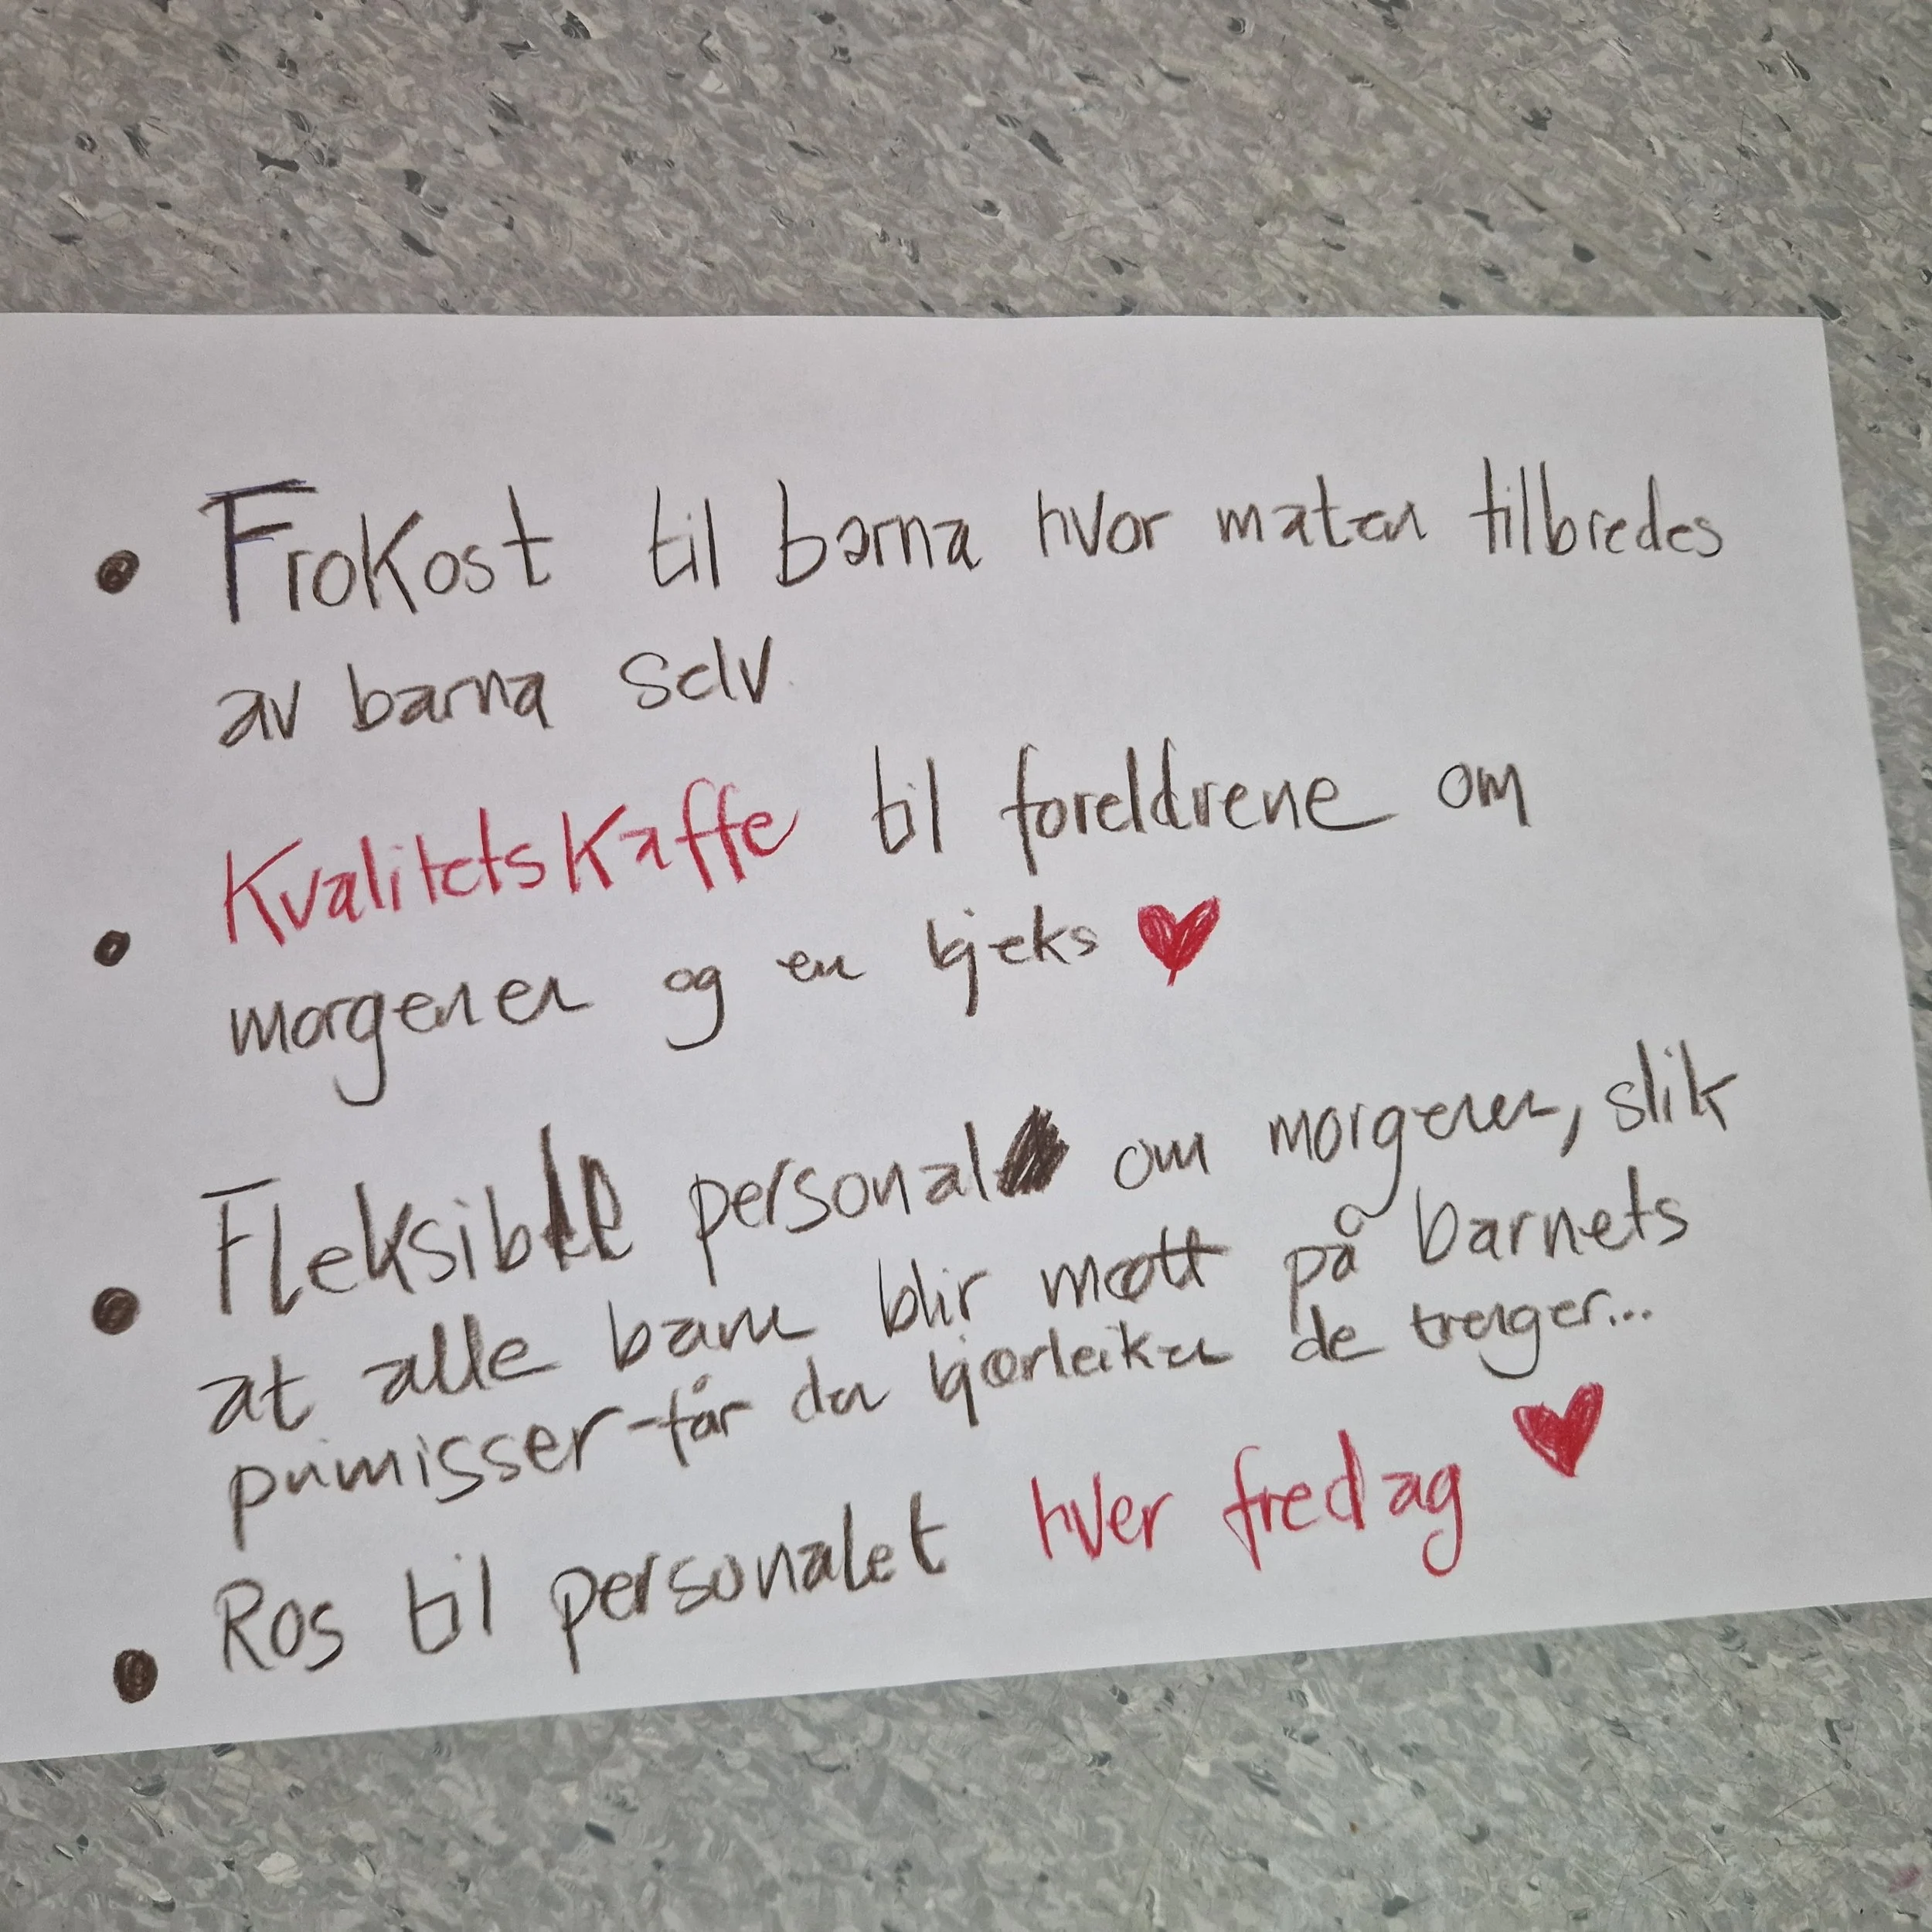 • Frokost til barna hvor maten tilbredes
av barna selv
• Kvalitetskaffe til foreldrene om
morgenen og en kjeks ♥
• Fleksible personal om morgenen, slik
at alle barn blir møtt på barnets
primisser - får den kjærleiken de trenger...
• Ros til personalet hver fredag ♥